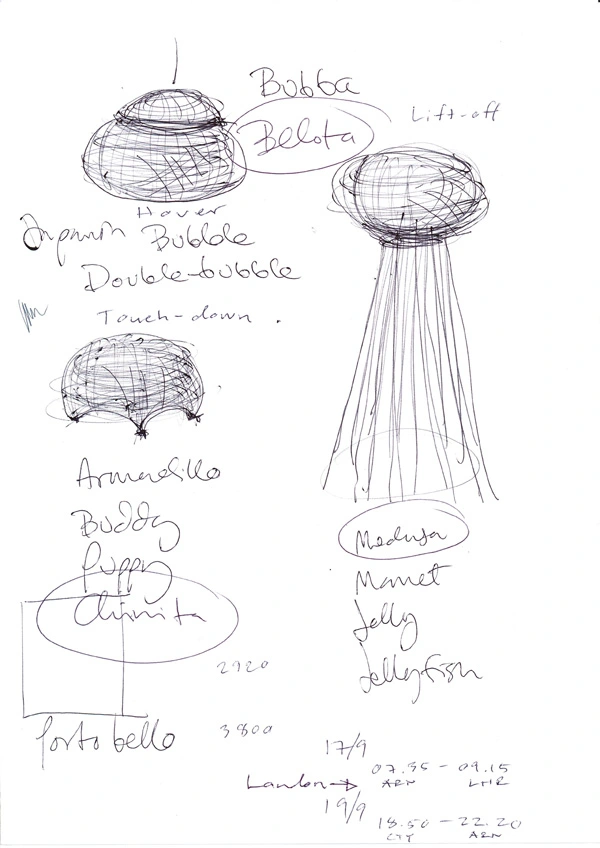 Bubba
Lift-off
Belota
Hover
Bubble
Double-bubble
Touch-down .
Armadillo
Buddy
Puppy
Chinita
Medusa
Manet
Jelly
Jellyfish
2920
Portobello
3800
17/9
07.55 - 09.15
London →
ARN LHR
19/9
18.50 - 22.20
CTY ARN